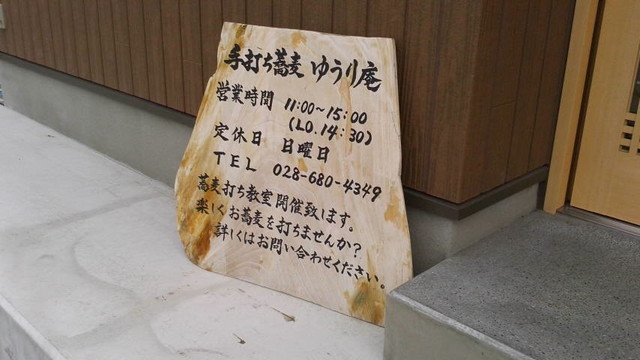 手打ち蕎麦 ゆうり庵
営業時間 11:00~15:00
(LO.14:30)
定休日 日曜日
TEL 028-680-4349
蕎麦打ち教室開催致します。
楽しくお蕎麦を打ちませんか?
詳しくはお問い合わせください。